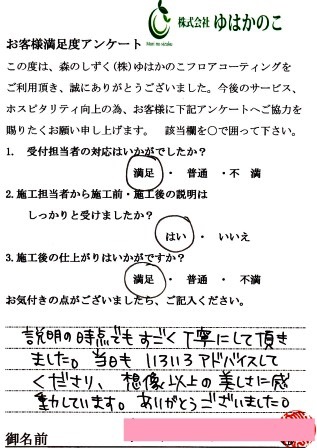 株式会社 ゆはかのこ
お客様満足度アンケート
この度は、森のしずく(株)ゆはかのこフロアコーティングを
ご利用頂き、誠にありがとうございました。今後のサービス、
ホスピタリティ向上の為、お客様に下記アンケートへご協力を
賜りたくお願い申し上げます。 該当欄を〇で囲って下さい。
1. 受付担当者の対応はいかがでしたか?
満足 ・ 普通 ・不 満
2.施工担当者から施工前・施工後の説明は
しっかりと受けましたか?
はい ・ いいえ
3.施工後の仕上がりはいかがですか?
満足 ・ 普通 ・ 不満
お気付きの点がございましたら、ご記入ください。
説明の時点でもすごく丁寧にして頂き
ました。当日も いろいろ アドバイスして
くださり、想像以上の美しさに感
動しています。ありがとうございました。
御名前